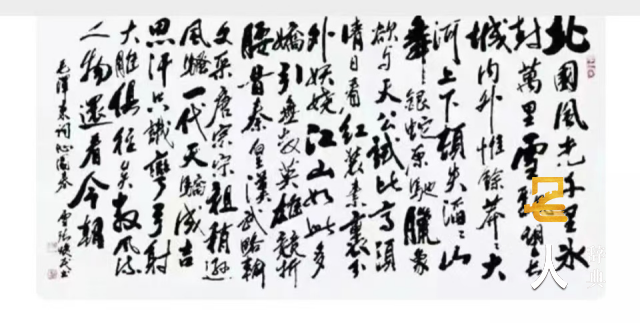 北國風光千里冰
封萬里雪飘望长
城内外惟餘莽々大
河上下頓失滔々山
舞々银蛇原馳臘象
欲与天公試比高須
晴日看红装素裹分
外妖娆江山如此多
嬌引無数英雄競折
腰昔秦皇漢武略輸
文采唐宗宋祖稍遜
風騷一代天驕成吉
思汗只識彎弓射
大雕俱往矣数風流
人物還看今朝
毛澤東詞沁園春
雪
人